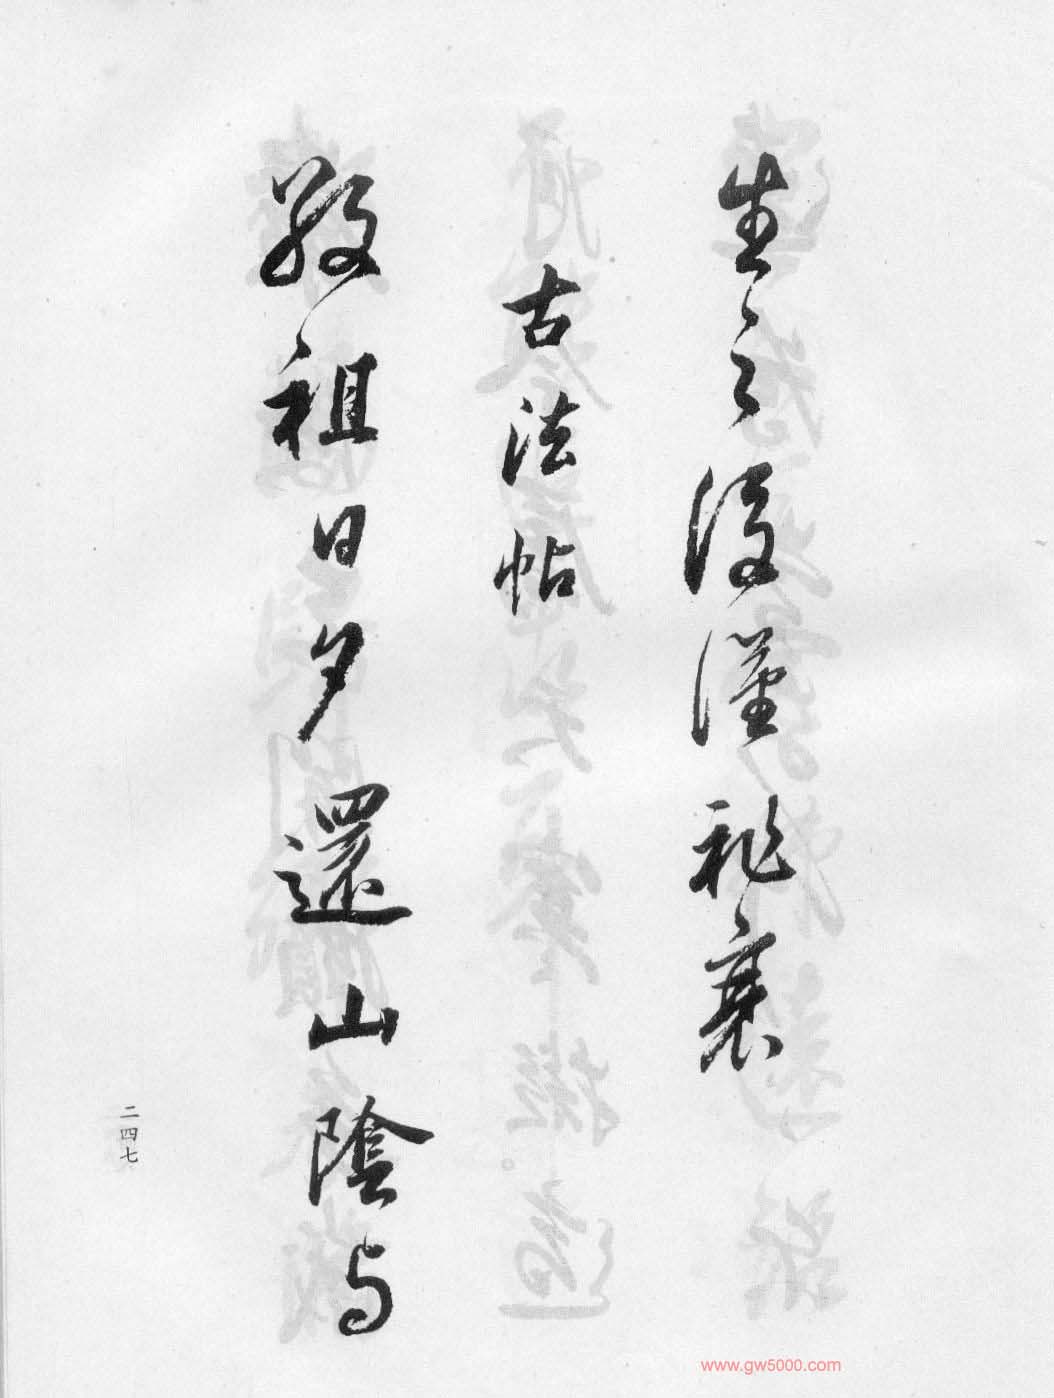 生之後謹
古法帖
敬祖日夕還山陰与
二四七
www.gw5000.com